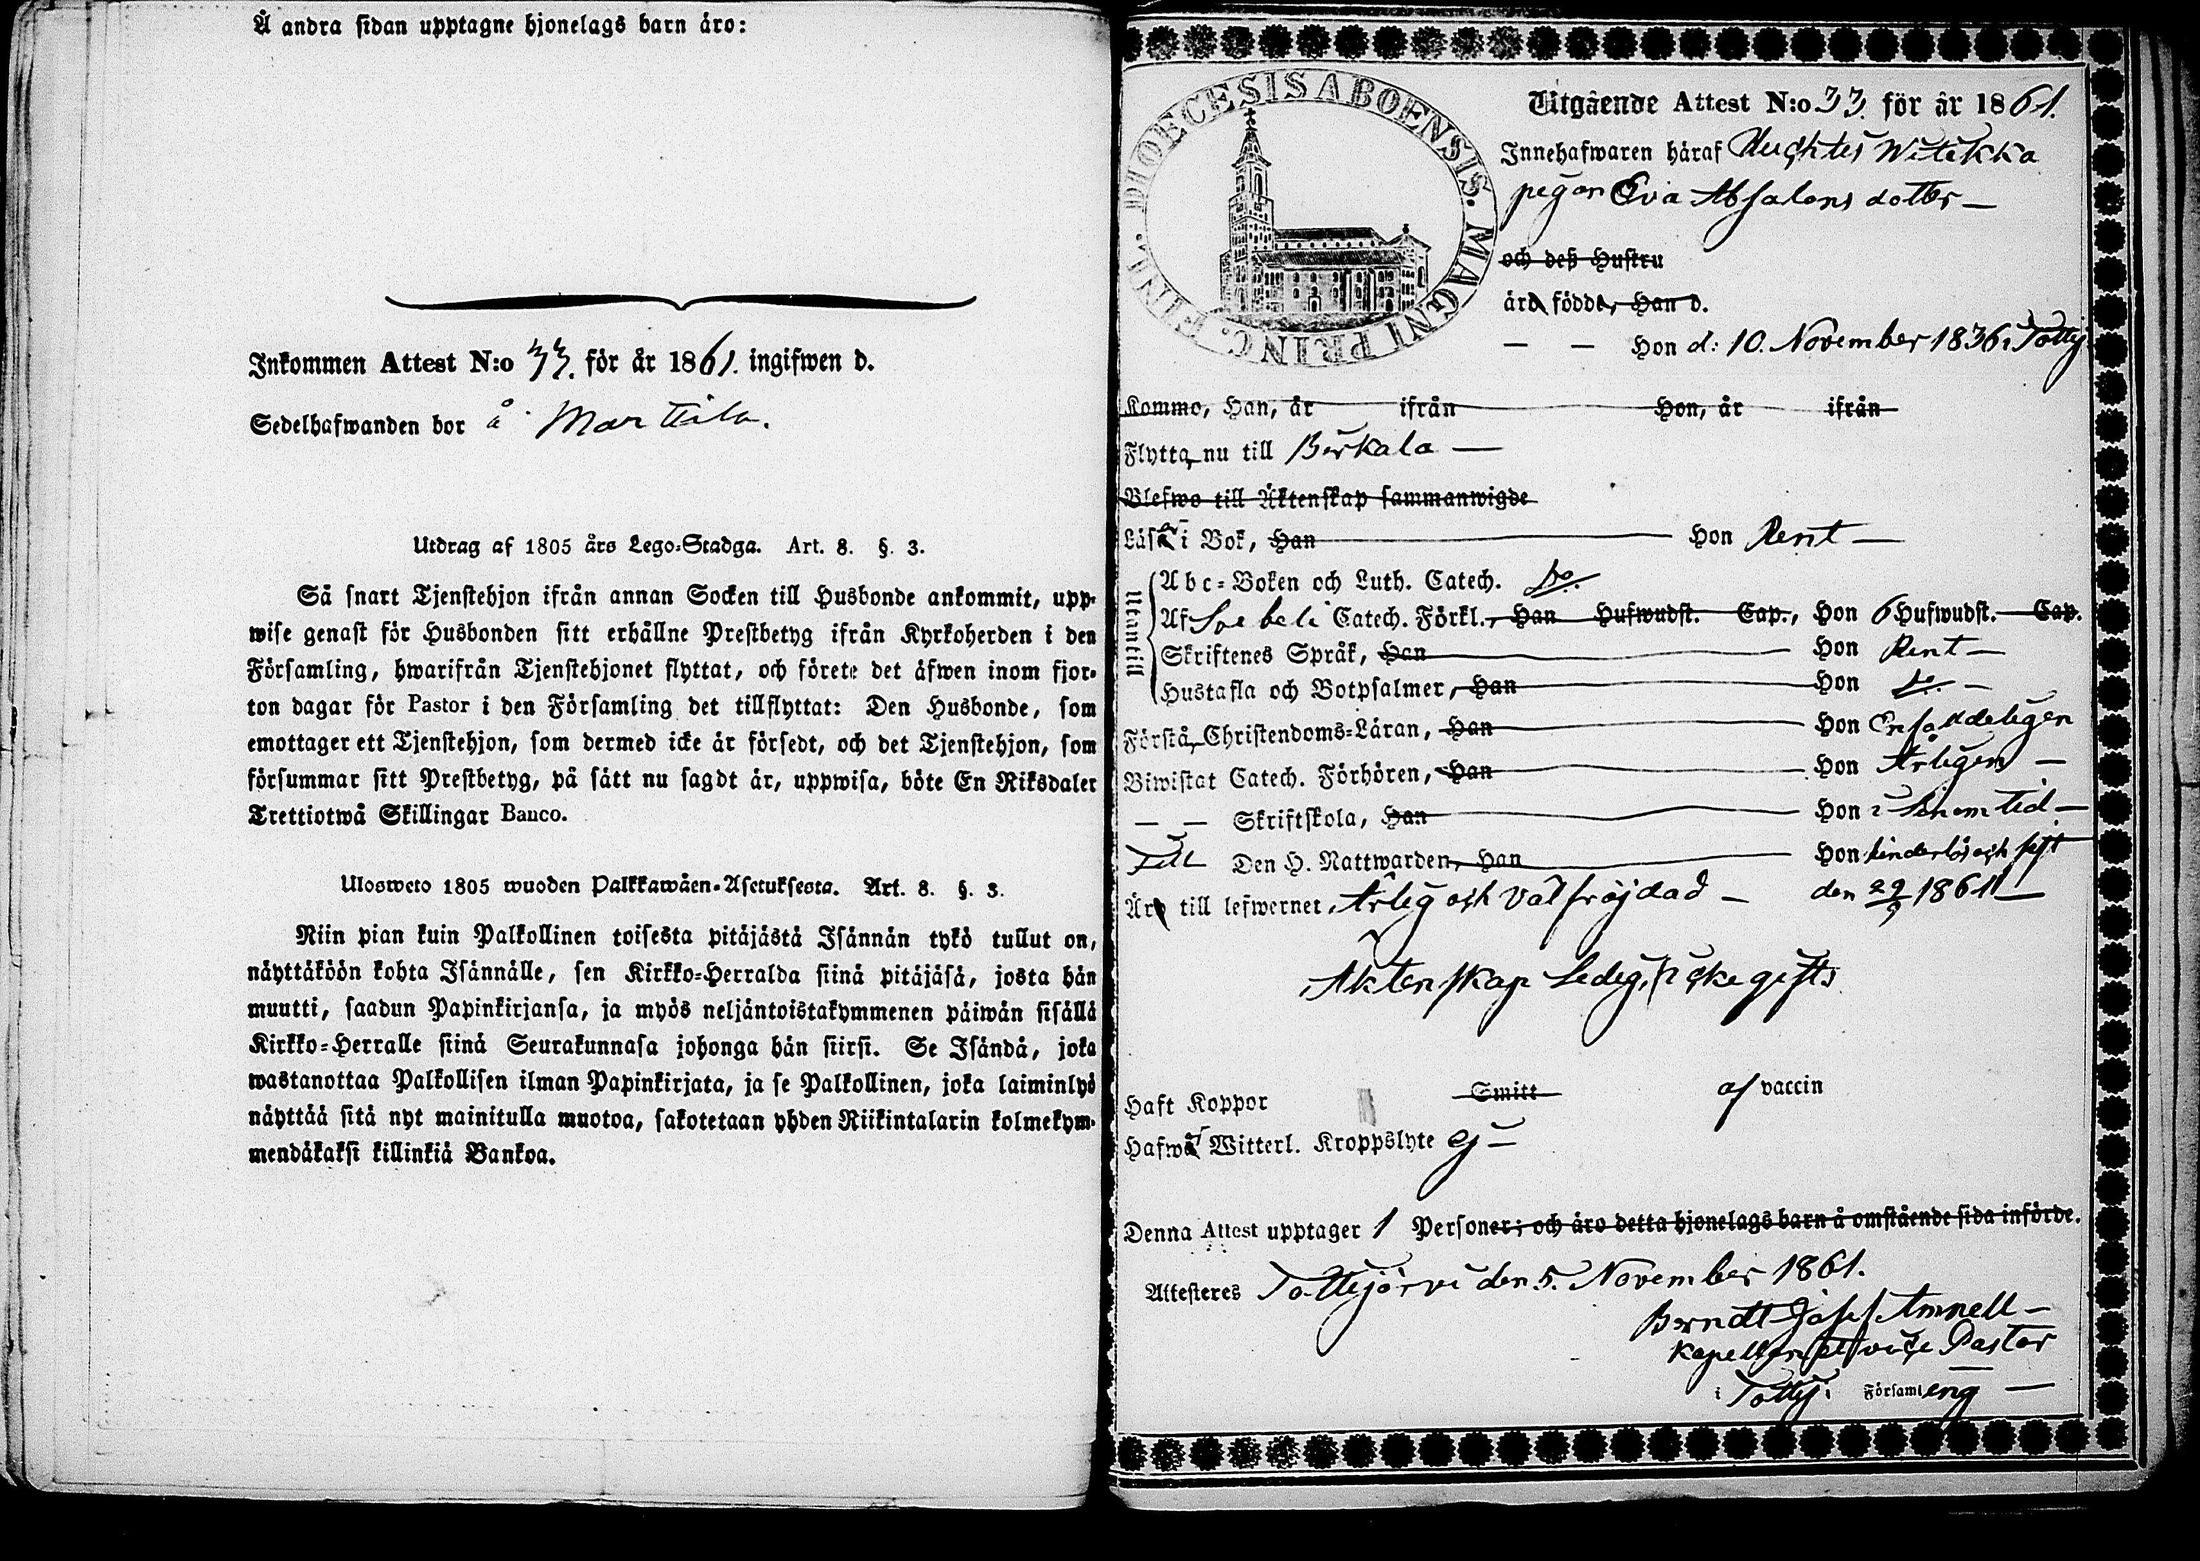 Å andra sidan upptagne hjonelags barn äro:
Inkommen Attest N:o 33. för år 1861. ingifwen d.
Sedelhafwanden bor å Marttila.
Utdrag af 1805 års Lego-Stadga. Art. 8. §. 3.
Så snart Tjenstehjon ifrån annan Socken till Husbonde ankommit, upp-
wise genast för Husbonden sitt erhållne Prestbetyg ifrån Kyrkoherden i den
Församling, hwarifrån Tjenstehjonet flyttat, och förete det äfwen inom fjor-
ton dagar för Pastor i den Församling det tillflyttat: Den Husbonde, som
emottager ett Tjenstehjon, som dermed icke är försedt, och det Tjenstehjon, som
försummar sitt Prestbetyg, på sätt nu sagdt är, uppwisa, böte En Riksdaler
Trettiotwå Skillingar Banco.
Ulosweto 1805 wuoden Palkkawäen-Asetuksesta. Art. 8. §. 3.
Niin pian kuin Palkollinen toisesta pitäjästä Isännän tykö tullut on,
näyttäköön kohta Isännälle, sen Kirkko-Herralda siinä pitäjäsä, josta hän
muutti, saadun Papinkirjansa, ja myös neljäntoistakymmenen päiwän sisällä
Kirkko-Herralle siinä Seurakunnasa johonga hän siirsi. Se Isändä, joka
wastanottaa Palkollisen ilman Papinkirjata, ja se Palkollinen, joka laiminlyö
näyttää sitä nyt mainitulla muotoa, sakotetaan yhden Riikintalarin kolmekym-
mendäkaksi killinkiä Bankoa.
DIOECESIS ABOENSIS. MAGNI PRINC. FINL.
Utgående Attest N:o 33. för år 1861.
Innehafwaren häraf Witikka
pigan Eva Absalons dotter
och deß Hustru
äro födde, Han d.
Hon d: 10. November 1836 i Tottij
Kommo, Han, år ifrån Hon, år ifrån
Flytta nu till Birkala
Blefwo till Äktenskap sammanwigde
Läser i Bok, Han Hon Rent
Utantill
Abc-Boken och Luth. Catech. do.
Af Svebeli Catech. Förkl. Han Hufwudst. Cap., Hon 6 Hufwudst. Cap.
Skriftenes Språk, Han Hon Rent
Hustafla och Botpsalmer, Han Hon do.
Förstå Christendoms-Läran, Han Hon Enfaldeligen
Biwistat Catech. Förhören, Han Hon Årligen
Skriftskola, Han Hon i sinom tid
Till Den H. Nattwarden, Han Hon hinderlös och sist
Äro till lefwernet Ärlig och välfrejdad den 29/9 1861
Äktenskap Ledig, icke gift
Haft Koppor Smitt af vaccin
Hafwer Witterl. Kroppslyte ej
Denna Attest upptager 1 Personer; och äro detta hjonelags barn å omstående sida införde.
Attesteres Tottijärvi den 5. November 1861.
Berndt Josef Amnell
Kapellan et vice Pastor
i Tottij: Församling